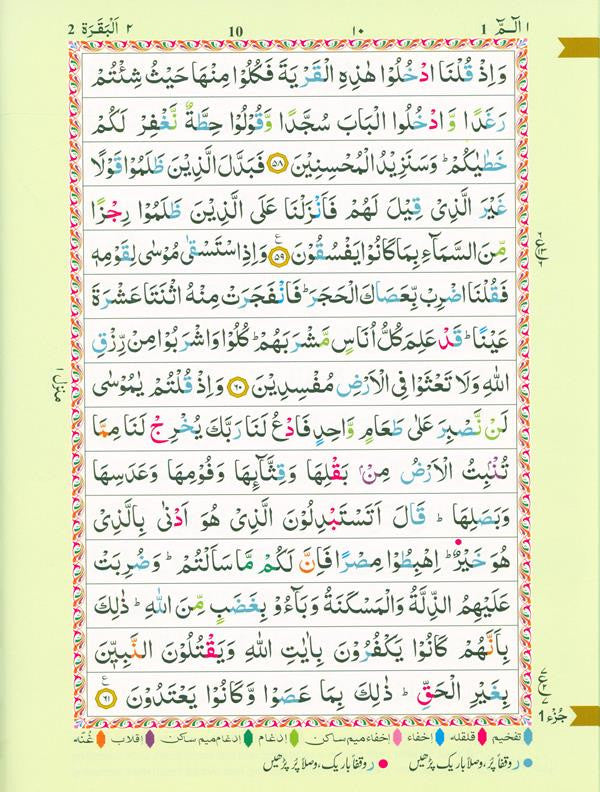 ۱ الٓـمّٓ 1 ۱۰ 10 ۲ اَلْبَقَرَة 2
وَاِذْ قُلْنَا ادْخُلُوْا هٰذِهِ الْقَرْيَةَ فَكُلُوْا مِنْهَا حَيْثُ شِئْتُمْ
رَغَدًا وَّادْخُلُوا الْبَابَ سُجَّدًا وَّقُوْلُوْا حِطَّةٌ نَّغْفِرْ لَكُمْ
خَطٰيٰكُمْ ؕ وَسَنَزِيْدُ الْمُحْسِنِيْنَ ۵۸ فَبَدَّلَ الَّذِيْنَ ظَلَمُوْا قَوْلًا
غَيْرَ الَّذِيْ قِيْلَ لَهُمْ فَاَنْزَلْنَا عَلَى الَّذِيْنَ ظَلَمُوْا رِجْزًا
مِّنَ السَّمَآءِ بِمَا كَانُوْا يَفْسُقُوْنَ ۵۹ ع وَاِذِ اسْتَسْقٰى مُوْسٰى لِقَوْمِهٖ
فَقُلْنَا اضْرِبْ بِّعَصَاكَ الْحَجَرَ ؕ فَانْفَجَرَتْ مِنْهُ اثْنَتَا عَشْرَةَ
عَيْنًا ؕ قَدْ عَلِمَ كُلُّ اُنَاسٍ مَّشْرَبَهُمْ ؕ كُلُوْا وَاشْرَبُوْا مِنْ رِّزْقِ
اللّٰهِ وَلَا تَعْثَوْا فِي الْاَرْضِ مُفْسِدِيْنَ ۶۰ وَاِذْ قُلْتُمْ يٰمُوْسٰى
لَنْ نَّصْبِرَ عَلٰى طَعَامٍ وَّاحِدٍ فَادْعُ لَنَا رَبَّكَ يُخْرِجْ لَنَا مِمَّا
تُنْۢبِتُ الْاَرْضُ مِنْۢ بَقْلِهَا وَقِثَّآئِهَا وَفُوْمِهَا وَعَدَسِهَا
وَبَصَلِهَا ؕ قَالَ اَتَسْتَبْدِلُوْنَ الَّذِيْ هُوَ اَدْنٰى بِالَّذِيْ
هُوَ خَيْرٌ ؕ اِهْبِطُوْا مِصْرًا فَاِنَّ لَكُمْ مَّا سَاَلْتُمْ ؕ وَضُرِبَتْ
عَلَيْهِمُ الذِّلَّةُ وَالْمَسْكَنَةُ وَبَآءُوْ بِغَضَبٍ مِّنَ اللّٰهِ ؕ ذٰلِكَ
بِاَنَّهُمْ كَانُوْا يَكْفُرُوْنَ بِاٰيٰتِ اللّٰهِ وَيَقْتُلُوْنَ النَّبِيّٖنَ
بِغَيْرِ الْحَقِّ ؕ ذٰلِكَ بِمَا عَصَوْا وَّكَانُوْا يَعْتَدُوْنَ ۶۱ ع
منزل ۱
جُزْء 1
تفخیم قلقلہ اخفاء اخفاء میم ساکن ادغام ادغام میم ساکن اقلاب غُنّہ
ر وقفاً پُر، وصلاً باریک پڑھیں ر وقفاً باریک، وصلاً پُر پڑھیں